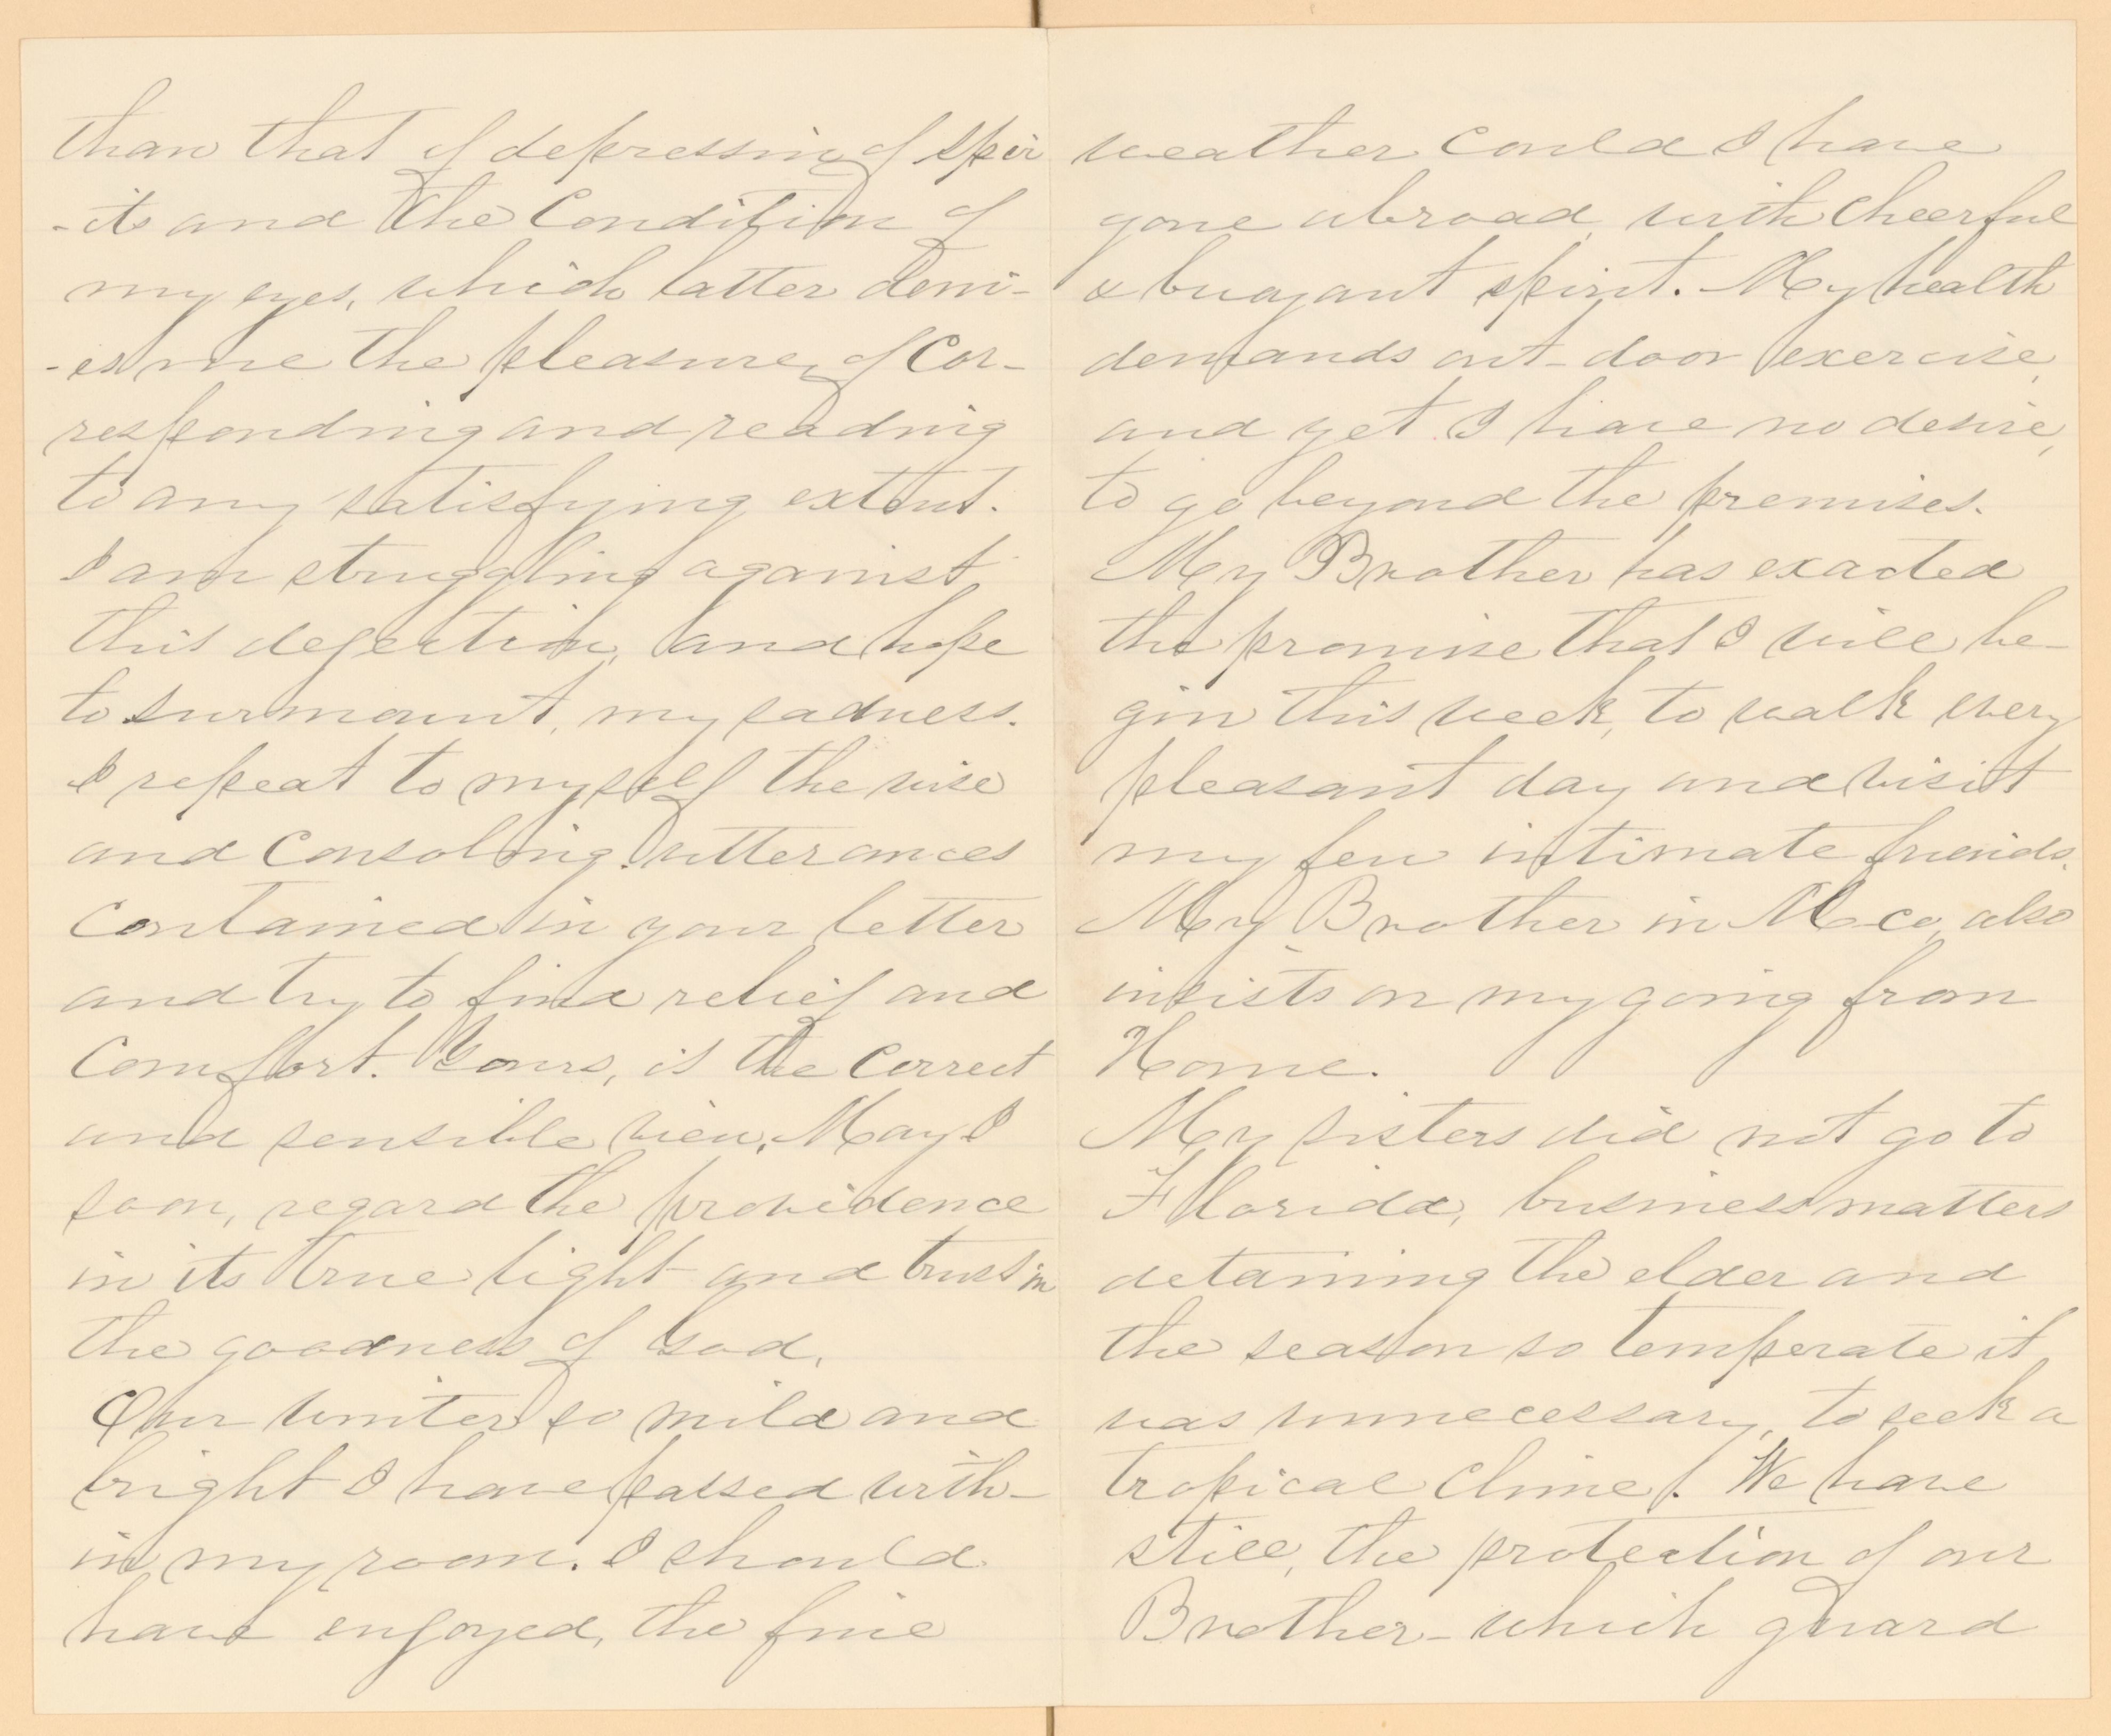 than that of depressing of spir
-its and the Condition of
my eyes, which latter deni-
-es me the pleasure, of Cor-
responding and reading
to any satisfying extent.
I am struggling against,
this dejection, and hope
to surmount, my sadness.
I repeat to myself the wise
and Consoling utterances
Contained in your letter
and try to find relief and
Comfort. Yours, is the Correct
and sensible view. May I
soon, regard the providence
in its true light and trust in
the goodness of God.
Our winter so mild and
bright I have passed with-
in my room. I should
have enjoyed, the fine
weather Could I have
gone abroad, with Cheerful
& buoyant spirit. My health
demands out-door exercise,
and yet I have no desire,
to go beyond the premises.
My Brother has exacted
the promise that I will be-
gin this week, to walk every
pleasant day and visit
my few intimate friends.
My Brother in M co, also
insists on my going from
Home.
My sisters did not go to
Florida, business matters
detaining the elder and
the season so temperate it
was unnecessary, to seek a
tropical Clime. We have
still, the protection of our
Brother- which guard